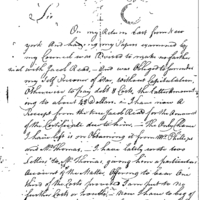 Sir
On my Return Last from New
york And having my Papers examined by
my Council was Advised to make no further
trial with Jacob Read, and was Obliged to Surrender
my Self Prisoner of War, Without Capitulation,
Otherwise to pay debt & Costs, the latter amount
ing to about 45 Dollars. I have now A
Receipt from the sd Jacob Read for the Amount
of the Certificate due to him. The Only Chance
I have left is on Obtaining it from Mr Phillips
and Mr Thomas. I have lately wrote two
Letters to Mr Thomas, giving him a particular
Account of the Matter, Offering to loose One
third of the Costs provided I am put to no
further Costs or trouble. Now I have to beg of